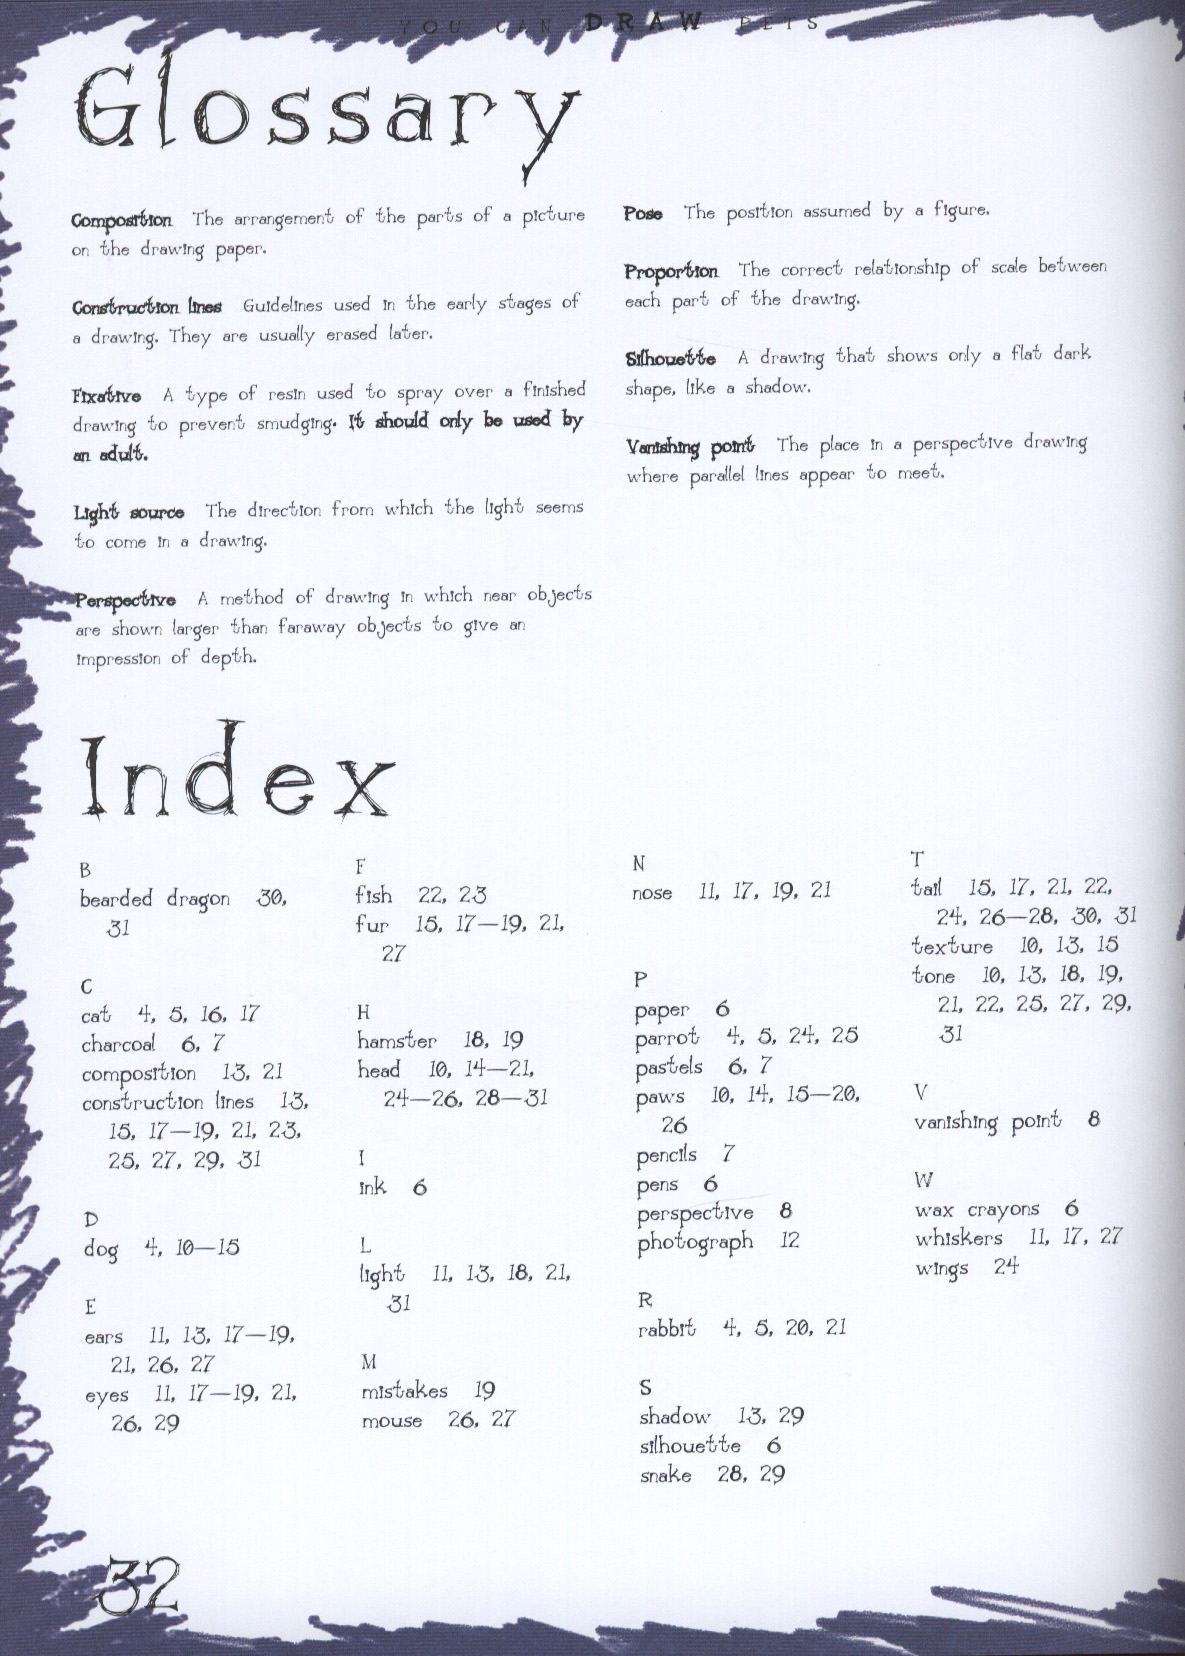 YOU CAN DRAW PETS
Glossary
Composition The arrangement of the parts of a picture
on the drawing paper.
Construction lines Guidelines used in the early stages of
a drawing. They are usually erased later.
Fixative A type of resin used to spray over a finished
drawing to prevent smudging. It should only be used by
an adult.
Light source The direction from which the light seems
to come in a drawing.
Perspective A method of drawing in which near objects
are shown larger than faraway objects to give an
impression of depth.
Pose The position assumed by a figure.
Proportion The correct relationship of scale between
each part of the drawing.
Silhouette A drawing that shows only a flat dark
shape, like a shadow.
Vanishing point The place in a perspective drawing
where parallel lines appear to meet.
Index
B
bearded dragon 30,
31
C
cat 4, 5, 16, 17
charcoal 6, 7
composition 13, 21
construction lines 13,
15, 17—19, 21, 23,
25, 27, 29, 31
D
dog 4, 10—15
E
ears 11, 13, 17—19,
21, 26, 27
eyes 11, 17—19, 21,
26, 29
F
fish 22, 23
fur 15, 17—19, 21,
27
H
hamster 18, 19
head 10, 14—21,
24—26, 28—31
I
ink 6
L
light 11, 13, 18, 21,
31
M
mistakes 19
mouse 26, 27
N
nose 11, 17, 19, 21
P
paper 6
parrot 4, 5, 24, 25
pastels 6, 7
paws 10, 14, 15—20,
26
pencils 7
pens 6
perspective 8
photograph 12
R
rabbit 4, 5, 20, 21
S
shadow 13, 29
silhouette 6
snake 28, 29
T
tail 15, 17, 21, 22,
24, 26—28, 30, 31
texture 10, 13, 15
tone 10, 13, 18, 19,
21, 22, 25, 27, 29,
31
V
vanishing point 8
W
wax crayons 6
whiskers 11, 17, 27
wings 24
32